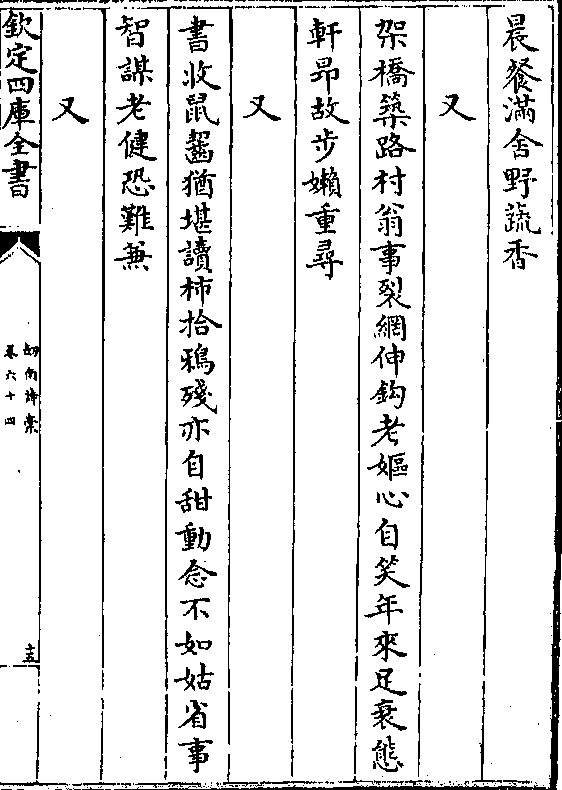 晨餐滿舍野蔬香
又
架橋築路村翁事裂網伸鈎老嫗心自笑年來足衰態
軒昂故步嬾重尋
又
書收鼠齧猶堪讀柿拾鴉殘亦自甜動念不如姑省事
智謀老健恐難兼
又
欽定四庫全書
劒南詩稾
卷六十四
十五